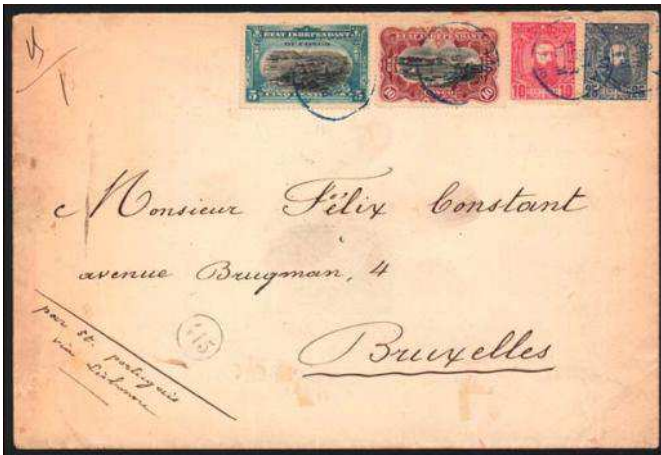 ETAT INDEPENDANT
DU CONGO
5 5
ETAT INDEPENDANT
10 10
10 10
25 25
Monsieur Félix Constant
à
avenue Brugman, 4
Bruxelles
par st. portugais
via Lisbonne
415